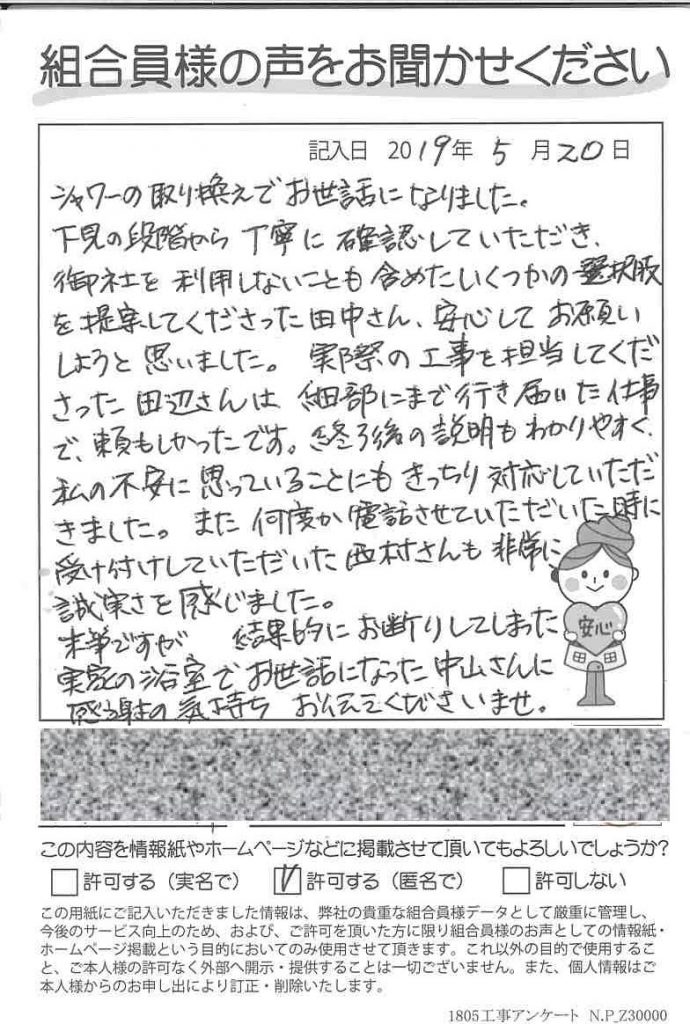 組合員様の声をお聞かせください
記入日 2019年 5月20日
シャワーの取り換えでお世話になりました。
下見の段階から丁寧に確認していただき、
御社を利用しないことも含めたいくつかの選択肢
を提案してくださった田中さん、安心してお願い
しようと思いました。実際の工事を担当してくだ
さった田辺さんは細部にまで行き届いた仕事
で、頼もしかったです。終了後の説明もわかりやすく、
私の不安に思っていることにもきっちり対応していただ
きました。また何度か電話させていただいた時に
受け付けしていただいた西村さんも非常に
誠実さを感じました。
末筆ですが 結果的にお断りしてしまった
実家の浴室でお世話になった中山さんに
感謝の気持ちお伝えくださいませ。
安心
この内容を情報紙やホームページなどに掲載させて頂いてもよろしいでしょうか?
許可する（実名で） 許可する（匿名で） 許可しない
この用紙にご記入いただきました情報は、弊社の貴重な組合員様データとして厳重に管理し、
今後のサービス向上のため、および、ご許可を頂いた方に限り組合員様のお声としての情報紙・
ホームページ掲載という目的においてのみ使用させて頂きます。これ以外の目的で使用するこ
と、ご本人様の許可なく外部へ開示・提供することは一切ございません。また、個人情報はご
本人様からのお申し出により訂正・削除いたします。
1805工事アンケート N.P_Z30000